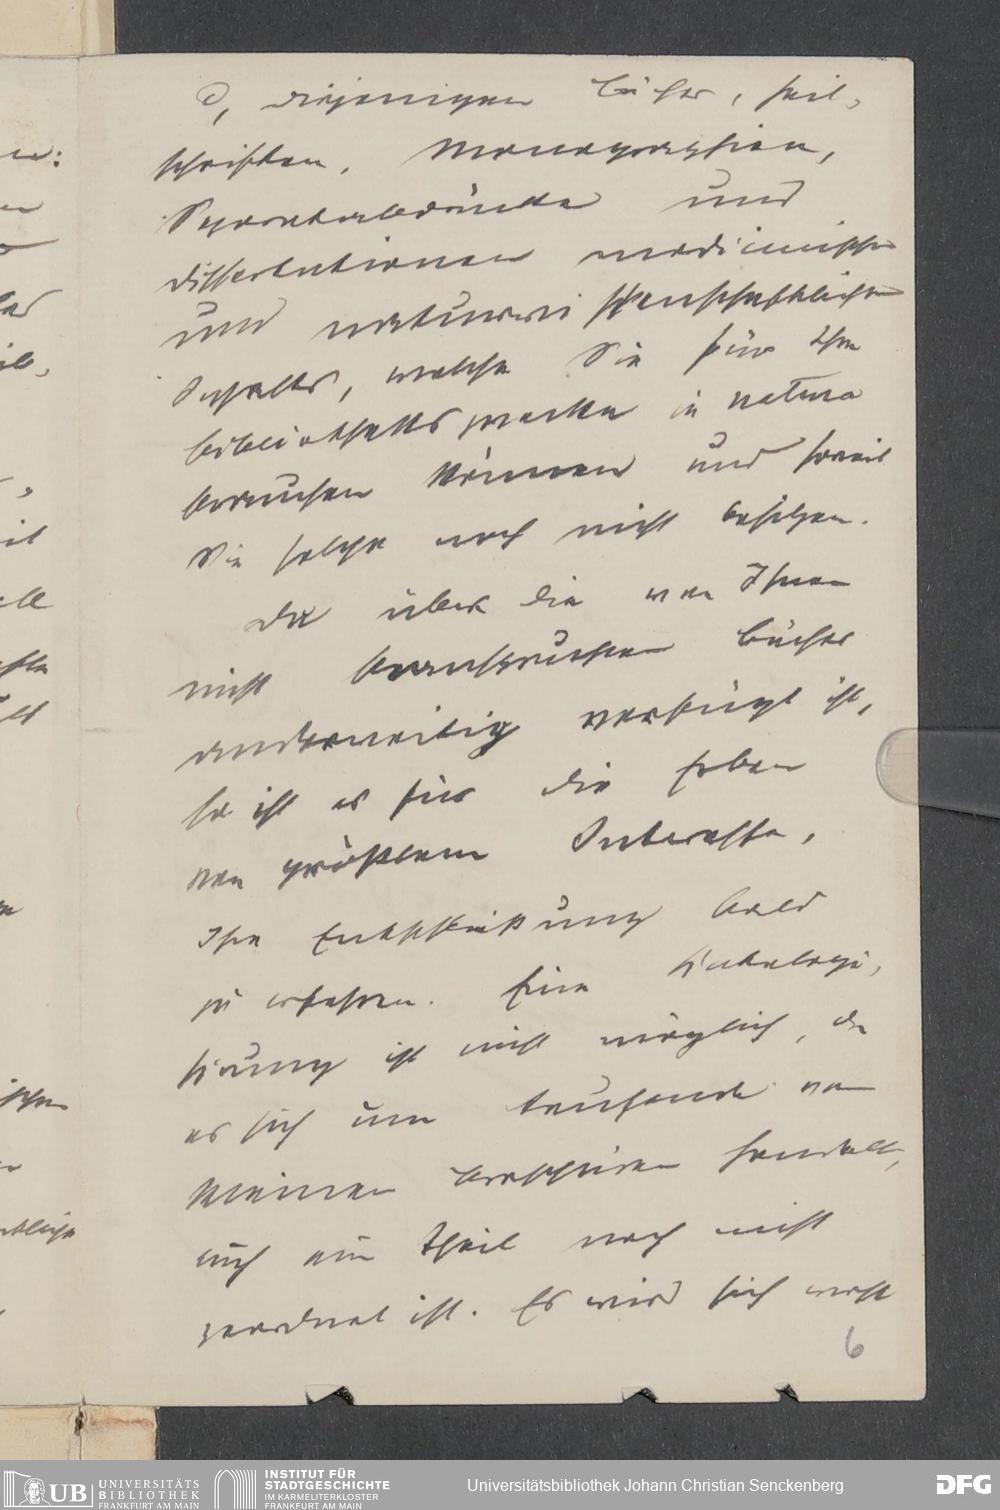 c, diejenigen Bücher, Zeit-
schriften, Monographien,
Separatabdrücke und
Dissertationen medicinischen
und naturwissenschaftlichen
Inhalts, welche Sie für Ihre
Bibliothekszwecke in natura
brauchen können und soweit
Sie solche noch nicht besitzen.
Da über die von Ihnen
nicht beanspruchten Bücher
anderweitig verfügt ist,
so ist es für die Erben
von größtem Interesse,
Ihre Entschließung bald
zu erfahren. Eine Katalogi-
sirung ist nicht möglich, da
es sich um tausende von
kleinen Broschüren handelt,
auch ein Theil noch nicht
geordnet ist. Es wird sich wohl
6
UB UNIVERSITÄTS
BIBLIOTHEK
FRANKFURT AM MAIN
INSTITUT FÜR
STADTGESCHICHTE
IM KARMELITERKLOSTER
FRANKFURT AM MAIN
Universitätsbibliothek Johann Christian Senckenberg
DFG